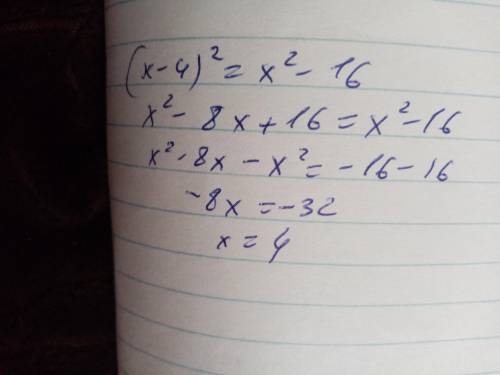 (x-4)² = x² - 16
x² - 8x + 16 = x² - 16
x² - 8x - x² = - 16 - 16
-8x = -32
x = 4